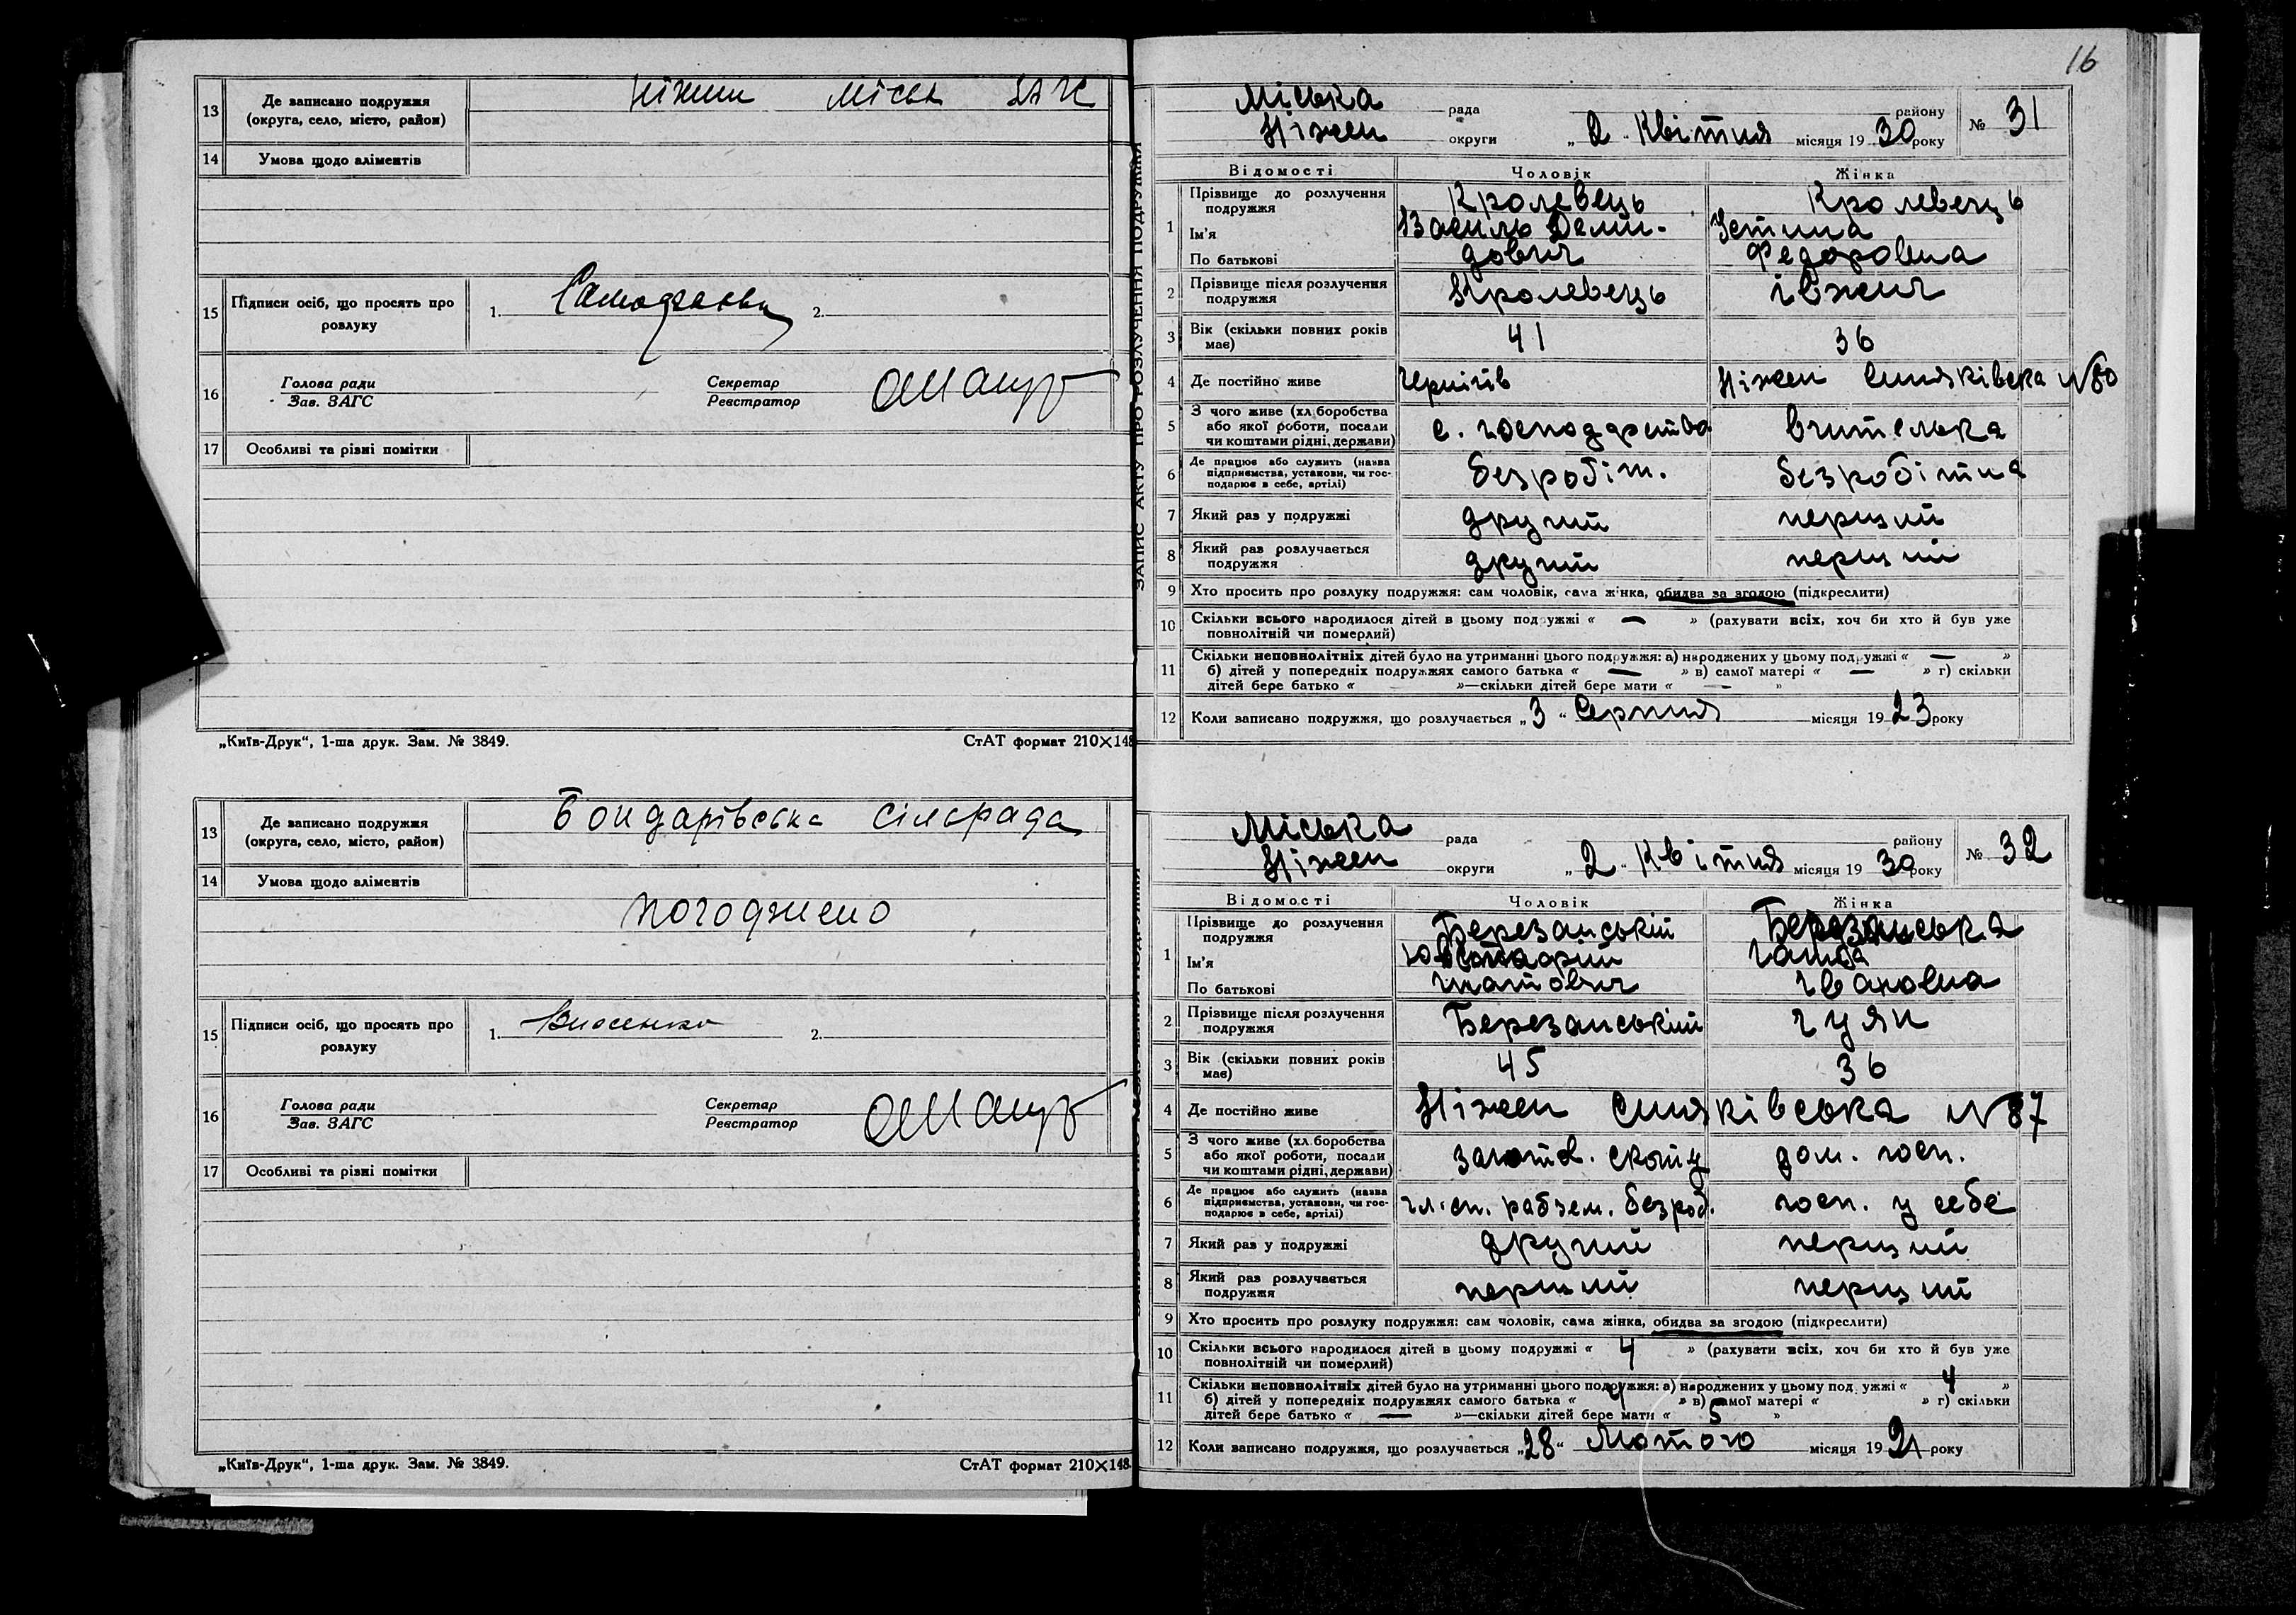 13 Де записано подружжя (округа, село, місто, район) Ніжин міськ ЗАГС
14 Умова щодо аліментів
15 Підписи осіб, що просять про розлуку 1. 2.
16 Голова ради Зав. ЗАГС Секретар Реєстратор
17 Особливі та різні помітки
„Київ-Друк“, 1-ша друк. Зам. № 3849. СтАТ формат 210×148
13 Де записано подружжя (округа, село, місто, район) Бондарівська сільрада
14 Умова щодо аліментів
погоджено
15 Підписи осіб, що просять про розлуку 1. 2.
16 Голова ради Зав. ЗАГС Секретар Реєстратор
17 Особливі та різні помітки
„Київ-Друк“, 1-ша друк. Зам. № 3849. СтАТ формат 210×148
16
ЗАПИС АКТУ ПРО РОЗЛУЧЕННЯ ПОДРУЖЖЯ
Міська рада району № 31
Ніжен округи „2“ Квітня місяця 1930 року
Відомості Чоловік Жінка
1 Прізвище до розлучення подружжя Кролевець Кролевець
Ім'я Василь Деми- Устина
По батькові дович Федоровна
2 Прізвище після розлучення подружжя Кролевець Івжич
3 Вік (скільки повних років має) 41 36
4 Де постійно живе Чернігів Ніжен Синяківска №80
5 З чого живе (хл.боробства або якої роботи, посади чи коштами рідні, держави) с. господарство вчителька
6 Де працює або служить (назва підприємства, установи, чи господарює в себе, артілі) безробіт. безробітна
7 Який раз у подружжі другий перший
8 Який раз розлучається подружжя другий перший
9 Хто просить про розлуку подружжя: сам чоловік, сама жінка, обидва за згодою (підкреслити)
10 Скільки всього народилося дітей в цьому подружжі « — » (рахувати всіх, хоч би хто й був уже
повнолітній чи померлий)
11 Скільки неповнолітніх дітей було на утриманні цього подружжя: а) народжених у цьому подружжі « — »
б) дітей у попередніх подружжях самого батька « — » в) самої матері « — » г) скільки
дітей бере батько « — »—скільки дітей бере мати « — »
12 Коли записано подружжя, що розлучається „3“ Серпня місяця 1923 року
Міська рада району № 32
Ніжен округи „2“ Квітня місяця 1930 року
Відомості Чоловік Жінка
1 Прізвище до розлучення подружжя Березанський Березанська
Ім'я
По батькові Івановна
2 Прізвище після розлучення подружжя Березанський Гуян
3 Вік (скільки повних років має) 45 36
4 Де постійно живе Ніжен Синяківська №87
5 З чого живе (хл.боробства або якої роботи, посади чи коштами рідні, держави) заготов. скоту дом. госп.
6 Де працює або служить (назва підприємства, установи, чи господарює в себе, артілі) рабзем. безроб. госп. у себе
7 Який раз у подружжі другий перший
8 Який раз розлучається подружжя перший перший
9 Хто просить про розлуку подружжя: сам чоловік, сама жінка, обидва за згодою (підкреслити)
10 Скільки всього народилося дітей в цьому подружжі « 4 » (рахувати всіх, хоч би хто й був уже
повнолітній чи померлий)
11 Скільки неповнолітніх дітей було на утриманні цього подружжя: а) народжених у цьому подружжі « 4 »
б) дітей у попередніх подружжях самого батька « » в) самої матері « » г) скільки
дітей бере батько « — »—скільки дітей бере мати « 5 »
12 Коли записано подружжя, що розлучається „28“ Лютого місяця 1921 року